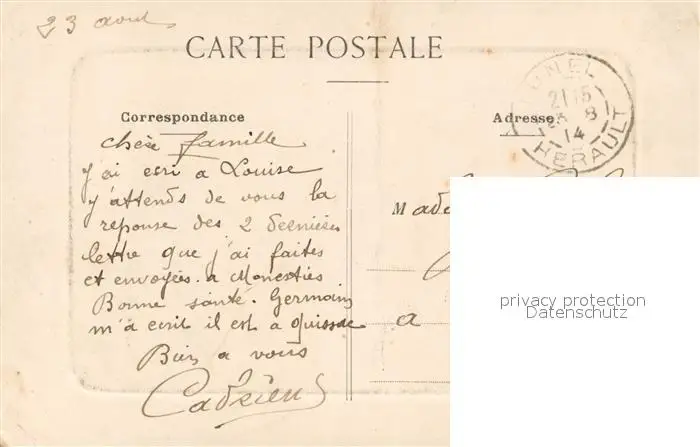 23 aout
CARTE POSTALE
LUNEL
21 15
23 8
14
HERAULT
Correspondance
Adresse
chère famille
J'ai ecri a Louise
J'attends de vous la
reponse des 2 dernières
lettre que j'ai faites
et envoyées. a Monesties
Bonne santé. Germain
m'a ecrit il est a Quissac
Bien a vous
Made
a
privacy protection
Datenschutz